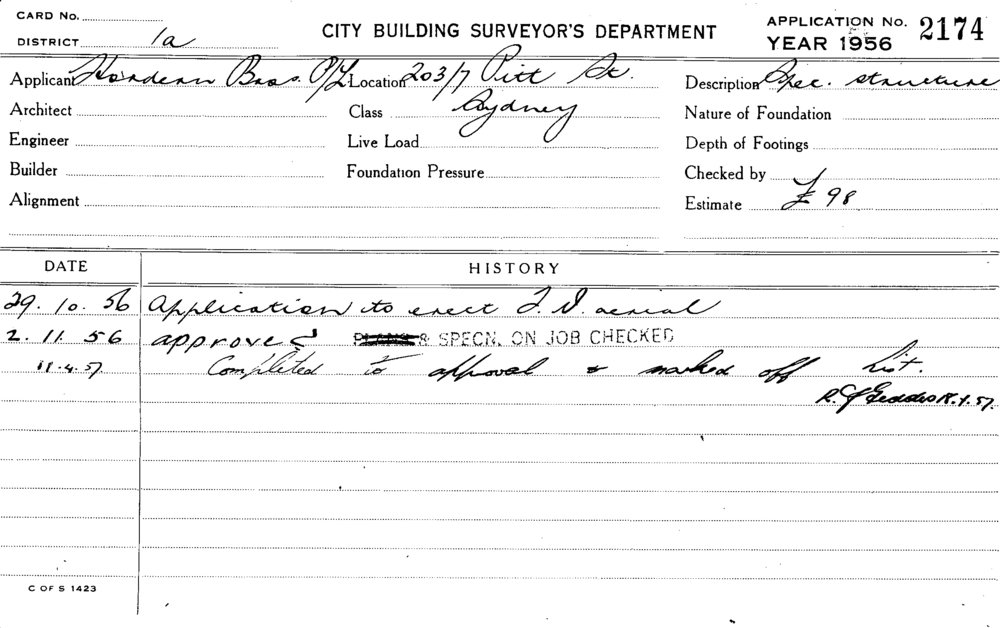 CARD No.
DISTRICT 1a
CITY BUILDING SURVEYOR'S DEPARTMENT
APPLICATION No. 2174
YEAR 1956
Applicant Hordern Bros. P/L Location 203/7 Pitt St. Description Spec. structure
Architect Class Sydney Nature of Foundation
Engineer Live Load Depth of Footings
Builder Foundation Pressure Checked by
Alignment Estimate £ 98
DATE HISTORY
29. 10. 56 Application to erect T.V. aerial
2. 11. 56 approved & SPECN. ON JOB CHECKED
11.4.57 Completed to approval & marked off list.
R. J. Geddes 18.4.57.
C OF S 1423